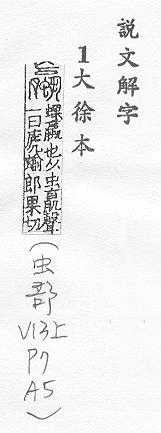 説文解字
1大徐本
蠃
蜾蠃也从虫𦝠聲
一曰虒蝓郎果切
(虫部 V13上 P7 A5)